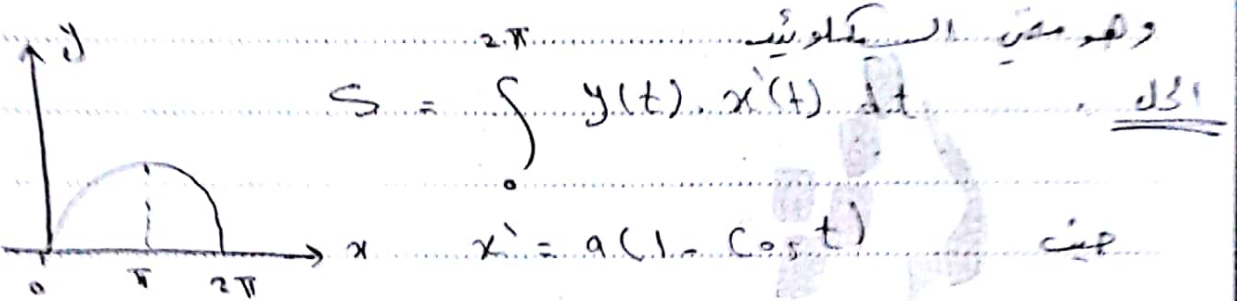 وهو مغني السيكلوئيد
الحل S = ∫₀^{2π} y(t) . x`(t) dt
حيث x` = a(1 - cos t)
y
x
0 π 2π